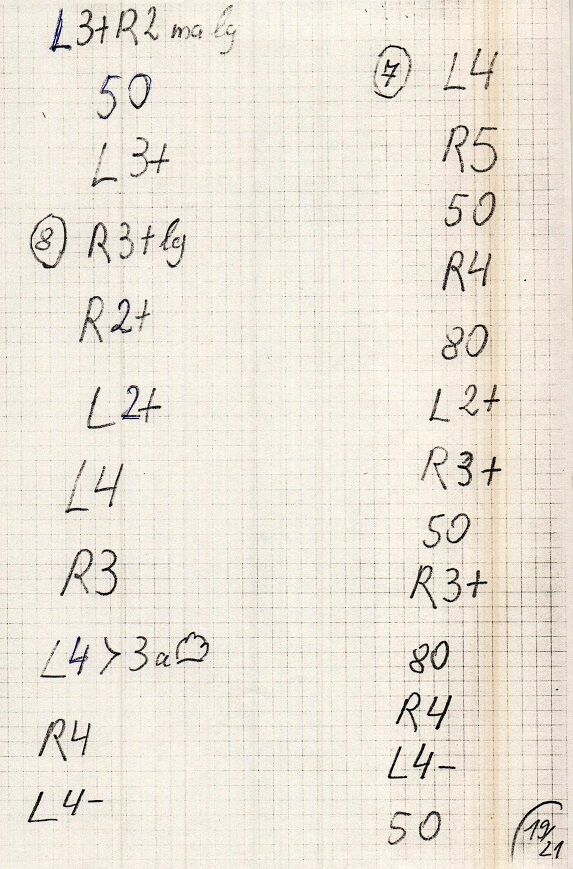 L3+R2 ma lg
50
L3+
8 R3+lg
R2+
L2+
L4
R3
L4>3a
R4
L4-
7 L4
R5
50
R4
80
L2+
R3+
50
R3+
80
R4
L4-
50
19/21